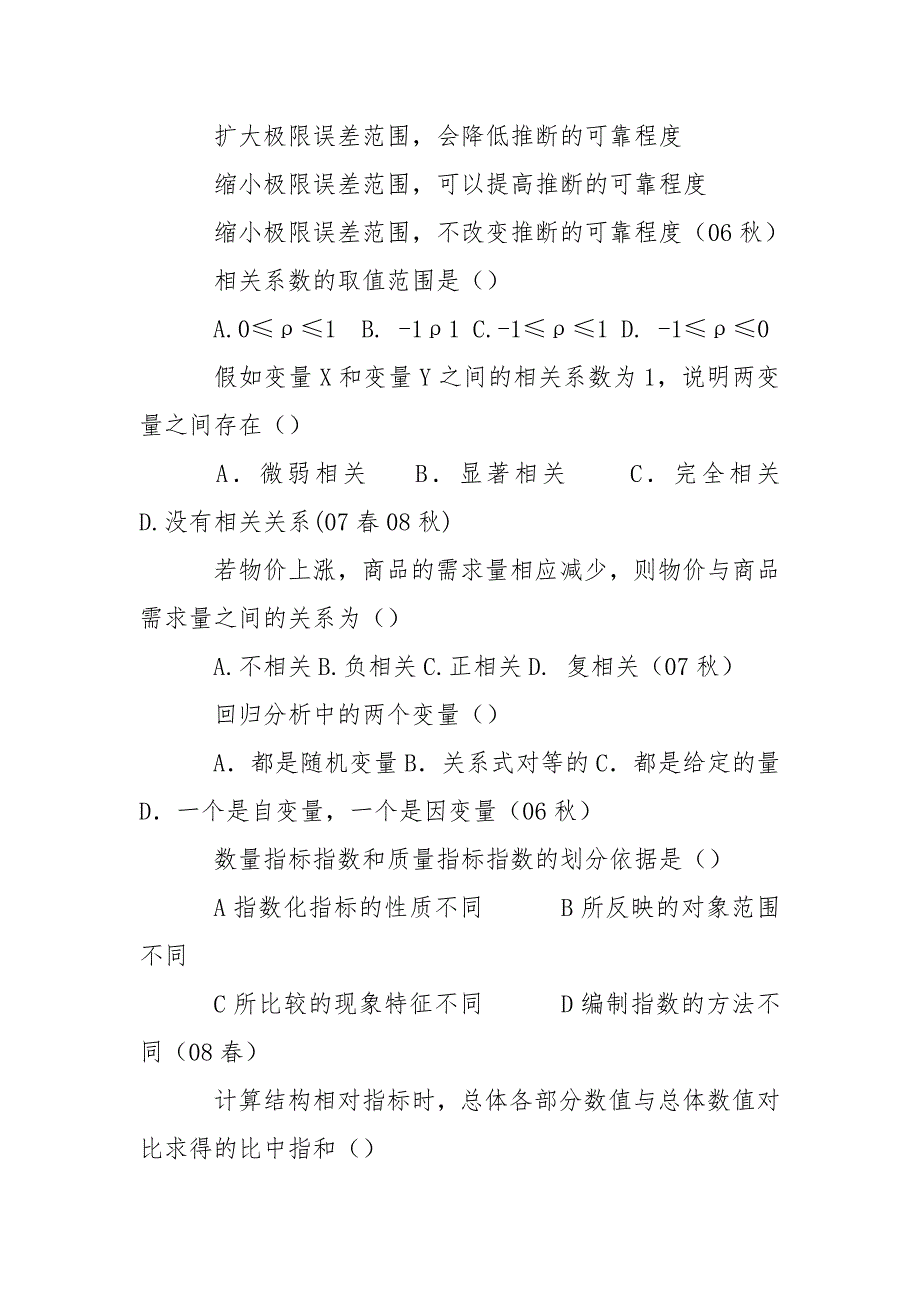 扩大极限误差范围，会降低推断的可靠程度
缩小极限误差范围，可以提高推断的可靠程度
缩小极限误差范围，不改变推断的可靠程度（06秋）
相关系数的取值范围是（）
A.0≤ρ≤1 B. -1ρ1 C.-1≤ρ≤1 D. -1≤ρ≤0
假如变量X和变量Y之间的相关系数为1，说明两变
量之间存在（）
A．微弱相关 B．显著相关 C．完全相关
D.没有相关关系(07春08秋)
若物价上涨，商品的需求量相应减少，则物价与商品
需求量之间的关系为（）
A.不相关B.负相关C.正相关D. 复相关（07秋）
回归分析中的两个变量（）
A．都是随机变量B．关系式对等的C．都是给定的量
D．一个是自变量，一个是因变量（06秋）
数量指标指数和质量指标指数的划分依据是（）
A指数化指标的性质不同 B所反映的对象范围
不同
C所比较的现象特征不同 D编制指数的方法不
同（08春）
计算结构相对指标时，总体各部分数值与总体数值对
比求得的比中指和（）